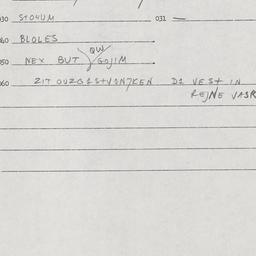 030 STOHUM 031 —
040 BLOLES
QW
050 NEX BUT GOJIM
060 ZIT OUZQ1STVONJKEN D1 VEST IN
REJNE VASR